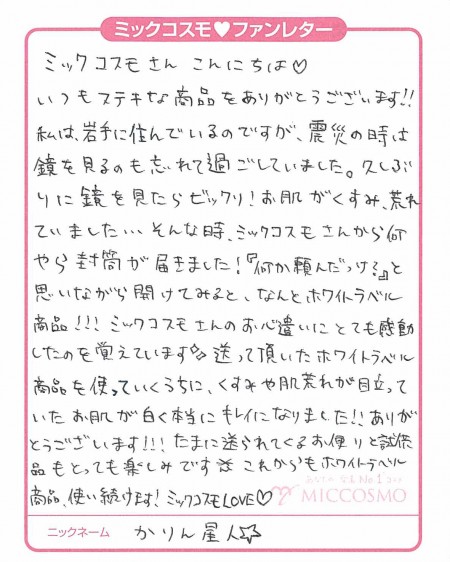 ミックコスモ♥ファンレター
ミックコスモさん こんにちは♡
いつもステキな商品をありがとうございます!!
私は、岩手に住んでいるのですが、震災の時は
鏡を見るのも忘れて過ごしていました。久しぶ
りに鏡を見たらビックリ!お肌がくすみ、荒れ
ていました… そんな時、ミックコスモさんから何
やら封筒が届きました!『何か頼んだっけ?』と
思いながら開けてみると、なんとホワイトラベル
商品!!! ミックコスモさんのお心遣いにとても感動
したのを覚えています☆ 送って頂いたホワイトラベル
商品を使っていくうちに、くすみや肌荒れが目立って
いたお肌が白く本当にキレイになりました!! ありが
とうございます!!! たまに送られてくるお便りと試供
品もとっても楽しみです☆ これからもホワイトラベル
商品、使い続けます! ミックコスモLOVE♡
MICCOSMO
ニックネーム かりん星人☆